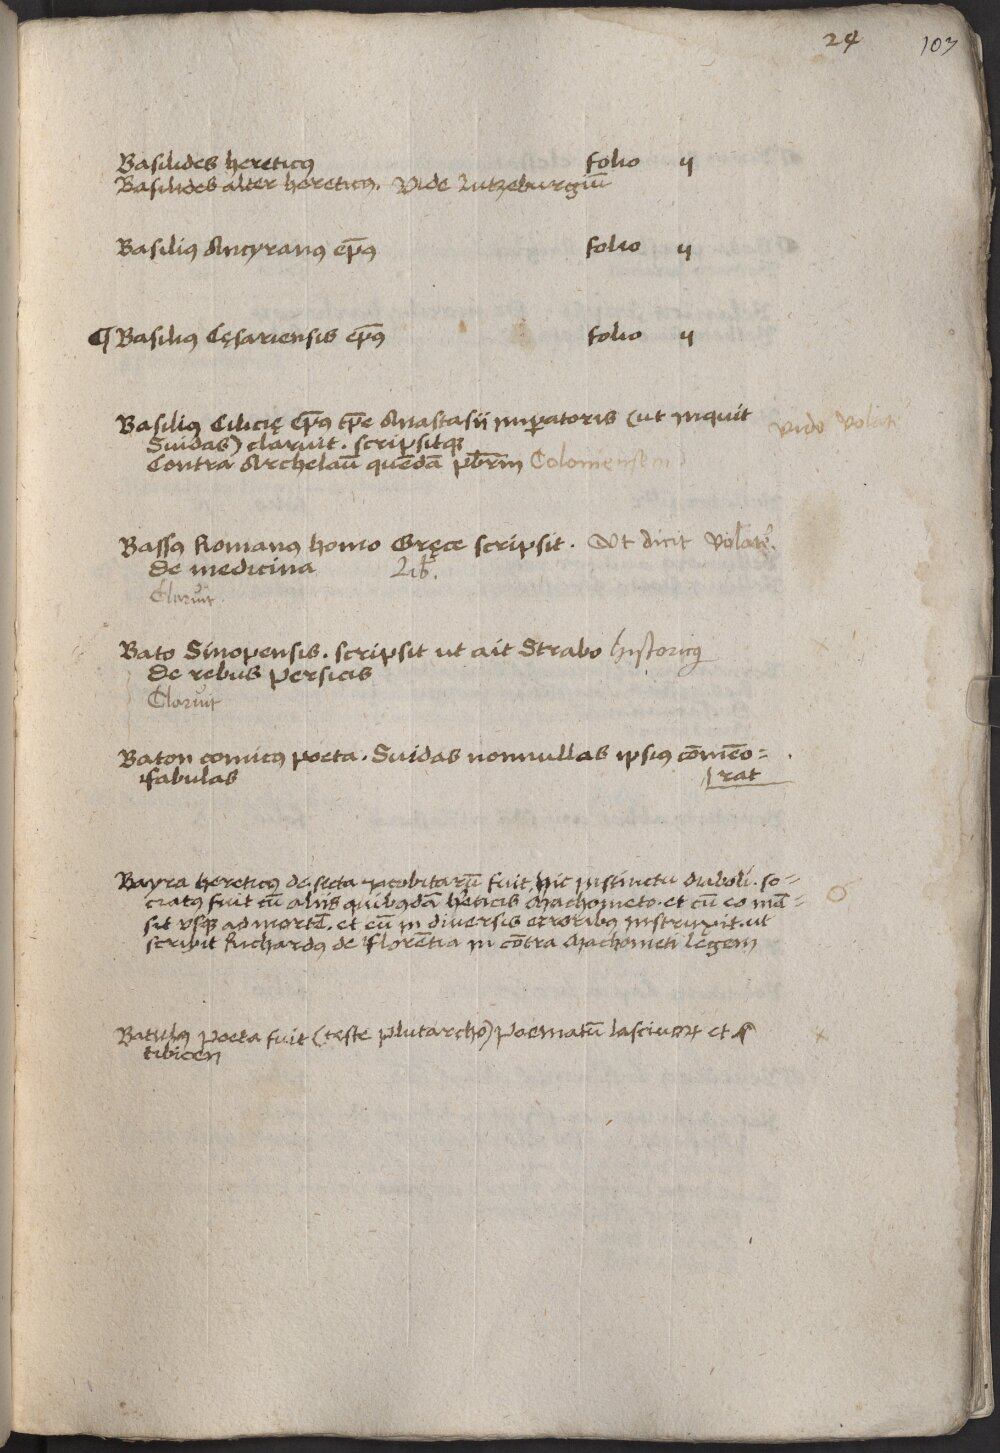 24 107
Basilides hereticꝰ folio ij
Basilides alter hereticꝰ. Vide Lutzeburgiū
Basiliꝰ Ancyranꝰ ep̄ꝰ folio ij
¶ Basiliꝰ Cęsariensis ep̄ꝰ folio ij
Basiliꝰ Cilicię ep̄ꝰ tp̄e Anastasii imꝑatoris (ut inquit vide Volate
Suidas) claruit. scripsitqꝫ
Contra Archelaū quendā pb̄rm Coloniensem
Bassꝰ Romanꝰ homo Gręce scripsit. Ut dicit Volateʳ.
De medicina Lib̄.
Claruit
Bato Sinopensis. scripsit ut ait Strabo historicꝰ
De rebus Persicis
Claruit
Baton comicꝰ poeta. Suidas nonnullas ipsiꝰ cōmēo=
fabulas rat
Bayra hereticꝰ de secta iacobitarū fuit, hic instinctu diaboli. so=
ciatꝰ fuit cū aliis quibꝰdā h̄eticis Machometo. et cū eo mā=
sit vsqꝫ ad mortē. et eū in diversis erroribꝰ instruxit. ut
scribit Richardꝰ de Florētia in cōtra Machometi legem
Batulꝰ poeta fuit (teste plutarcho) poematū lascivoꝝ et
tibicen